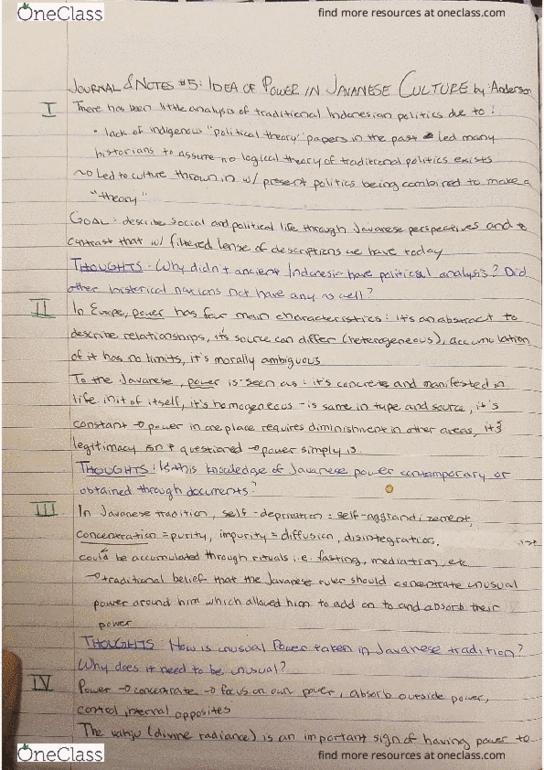 OneClass
find more resources at oneclass.com
JOURNAL & NOTES #5: IDEA OF POWER IN JAVANESE CULTURE by: Anderson
I There has been little analysis of traditional Indonesian politics due to:
• lack of indigenous "political theory" papers in the past led many
historians to assume no logical theory of traditional politics exists
Led to culture thrown in w/ present politics being combined to make a
"theory"
GOAL: describe social and political life through Javanese perspectives and
contrast that w/ filtered lense of descriptions we have today
THOUGHTS: Why didn't ancient Indonesia have political analysis? Did
other historical nations not have any as well?
II In Europe, power has four main characteristics: it's an abstract to
describe relationships, it's source can differ (heterogeneous), accumulation
of it has no limits, it's morally ambiguous
To the Javanese, power is seen as: it's concrete and manifested in
life init of itself, it's homogeneous - is same in type and source, it's
constant → power in one place requires diminishment in other areas, it's
legitimacy isn't questioned → power simply is
THOUGHTS: Is this knowledge of Javanese power contemporary or
obtained through documents?
III In Javanese tradition, self-deprivation = self-aggrandizement,
concentration = purity, impurity = diffusion, disintegration,
could be accumulated through rituals i.e. fasting, mediation, etc
→ traditional belief that the Javanese ruler should concentrate unusual
power around him which allowed him to add on to and absorb their
power
THOUGHTS: How is unusual Power taken in Javanese tradition?
Why does it need to be unusual?
IV Power → concentrate → focus on own power, absorb outside power,
control internal opposites
The wahju (divine radiance) is an important sign of having power to
OneClass
find more resources at oneclass.com